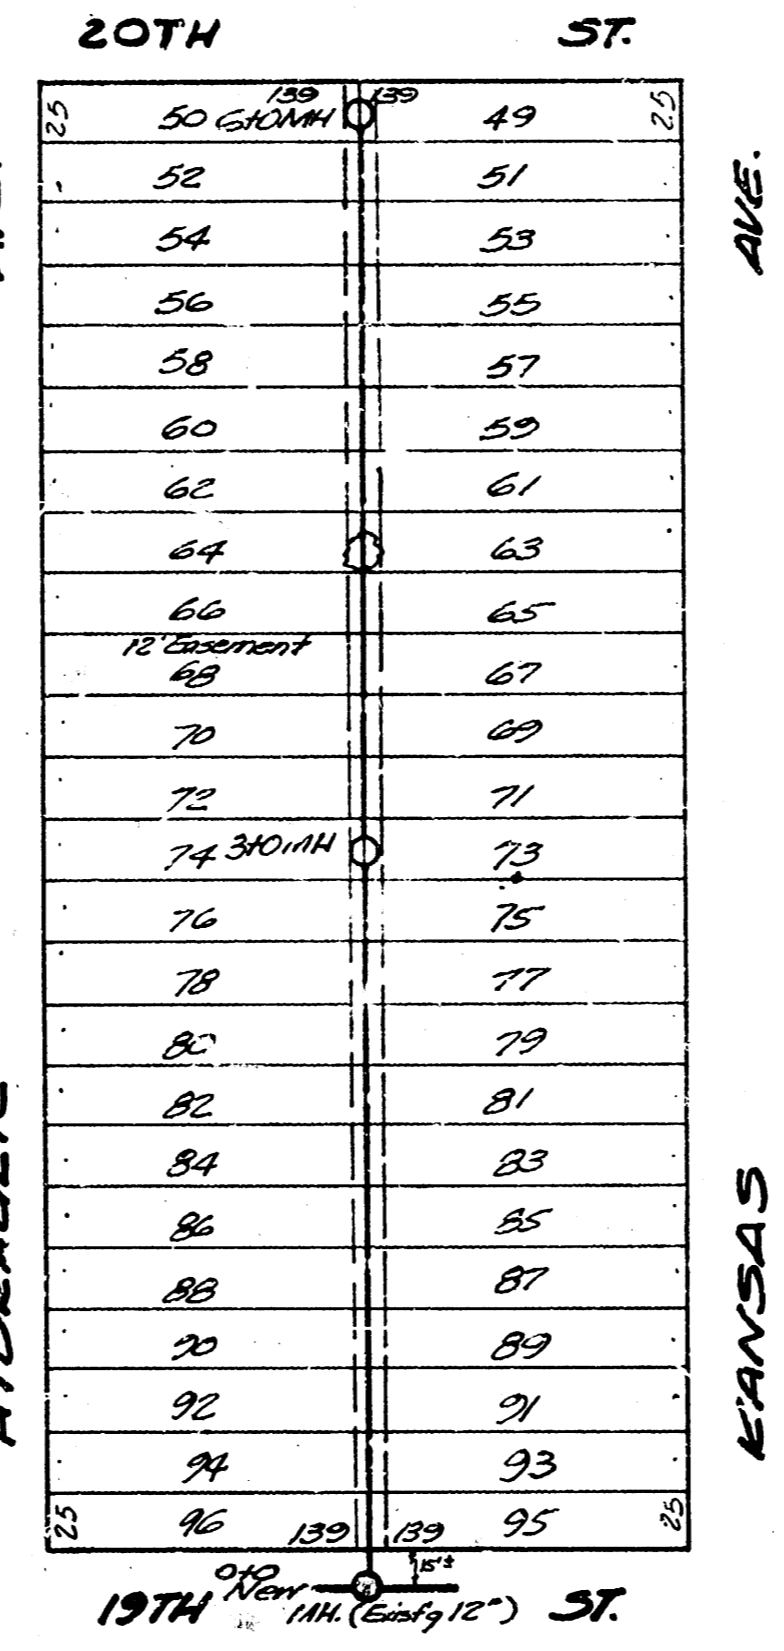 20TH ST.
25 139 139 25
50 6+0 MH 49
52 51
54 53
56 55
58 57
60 59
62 61
64 63
66 65
12' Easement
68 67
70 69
72 71
74 3+0 MH 73
76 75
78 77
80 79
82 81
84 83
86 85
88 87
90 89
92 91
94 93
25 96 139 139 95 25
0+0 15'±
New
19TH MH. (Exist'g 12") ST.
AVE.
KANSAS